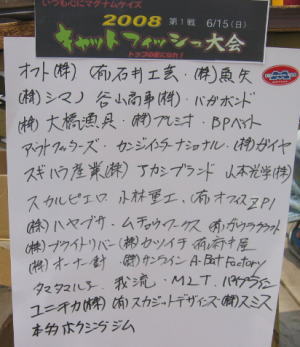 いつも心にマグナムサイズ
2008 第1戦 6/15(日)
キャットフィッシュ大会
オフト(株) (有)石井工芸・(株)魚矢
(株)シマノ 谷山商事(株)・バガボンド
(株)大橋漁具・(株)プレシオ・BPベイト
アウトフィッターズ・カンジインターナショナル・(株)ガイヤ
スギハラ産業(株) アカシブランド 山本光学(株)
スカルピエロ 小林重工 (有)オフィスZPI
(株)ハヤブサ・ムチョワークス (有)ガウラクラフト
(株)ブライトリバー・(株)カツイチ
(株)オーナー針・(株)サンライン A-Bat Factory
タマタマル・我流・MLT
ユニチカ(株)(有)スカジットデザインズ・(株)スミス
本初ボクシングジム